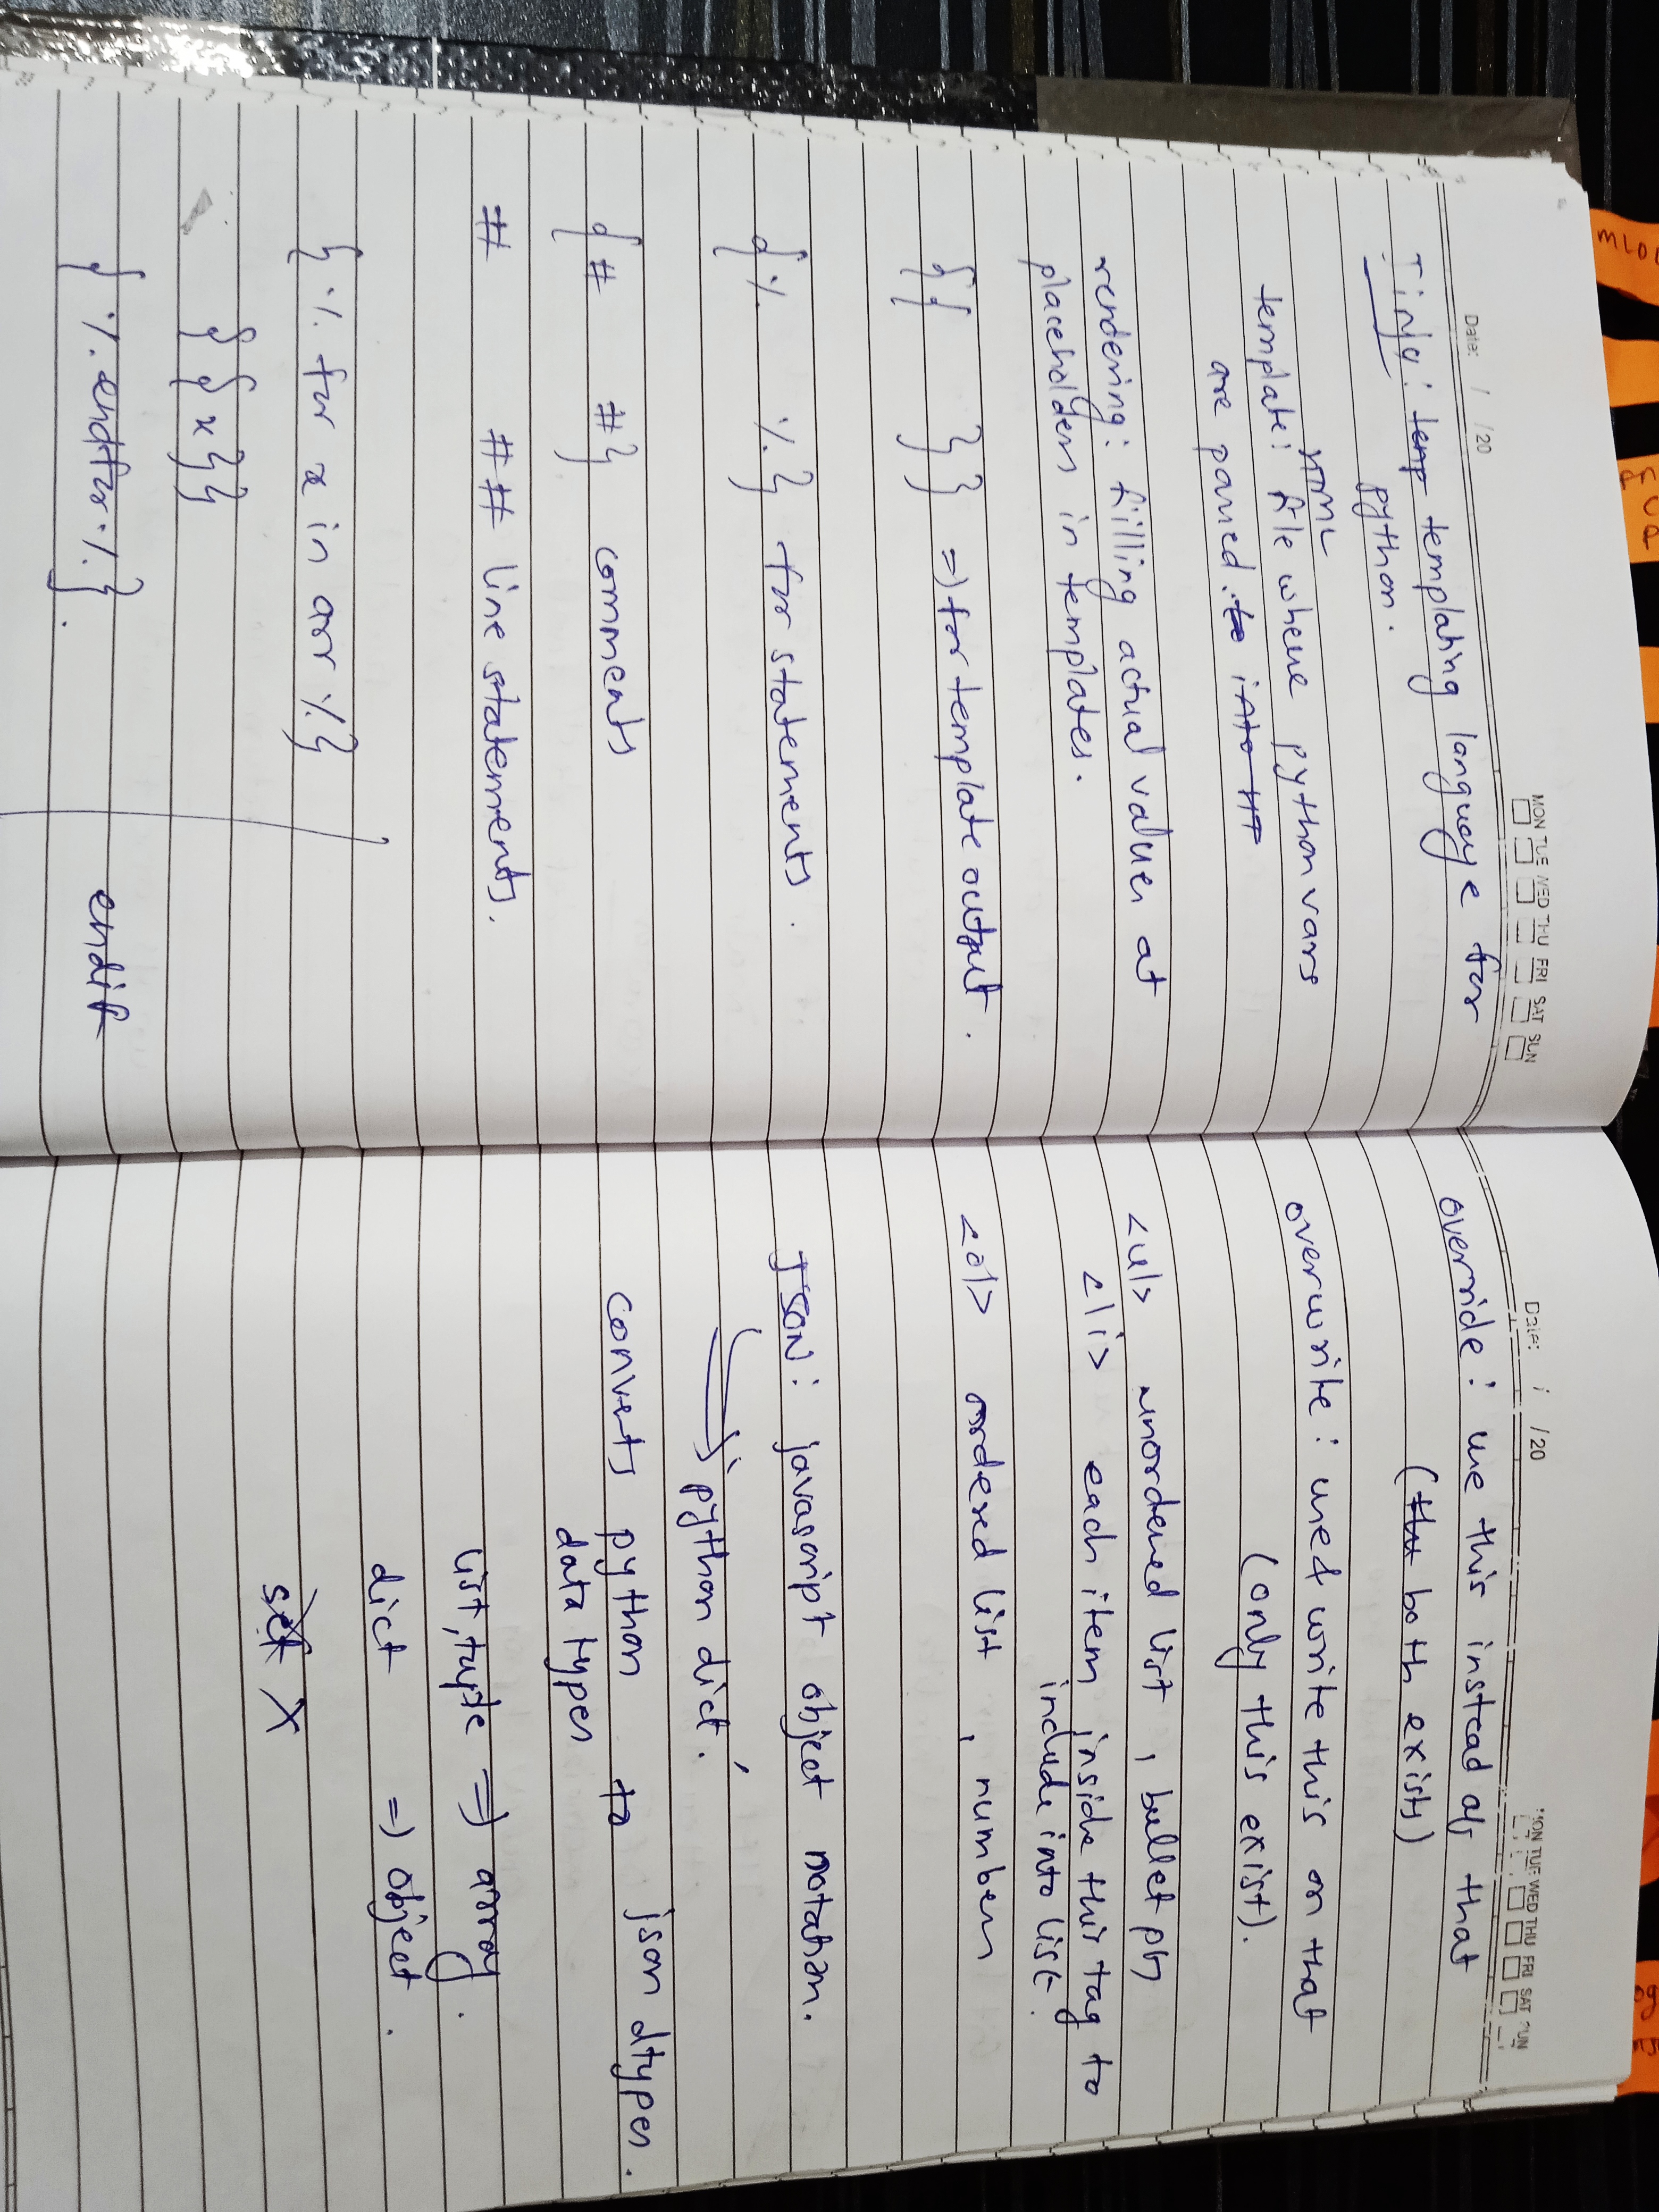 Date: / /20
MON TUE WED THU FRI SAT SUN
Jinja: temp templating language for
python.
HTML
template: file where python vars
are parsed. to into HT
rendering: filling actual values at
placeholders in templates.
{{ }} => for template output.
{% %} for statements.
{# #} comments
# ## line statements.
{% for x in arr %}
{{x}}
{% endfor %}.
endif
Date: / /20
MON TUE WED THU FRI SAT SUN
override: use this instead of that
(that both exists)
overwrite: used write this on that
(only this exist).
<ul> unordered list, bullet pts
<li> each item inside this tag to
include into list.
<ol> ordered list, numbers
JSON: javascript object notation.
→ python dict.
converts python to json dtypes.
data types
list, tuple => array.
dict => object.
set X